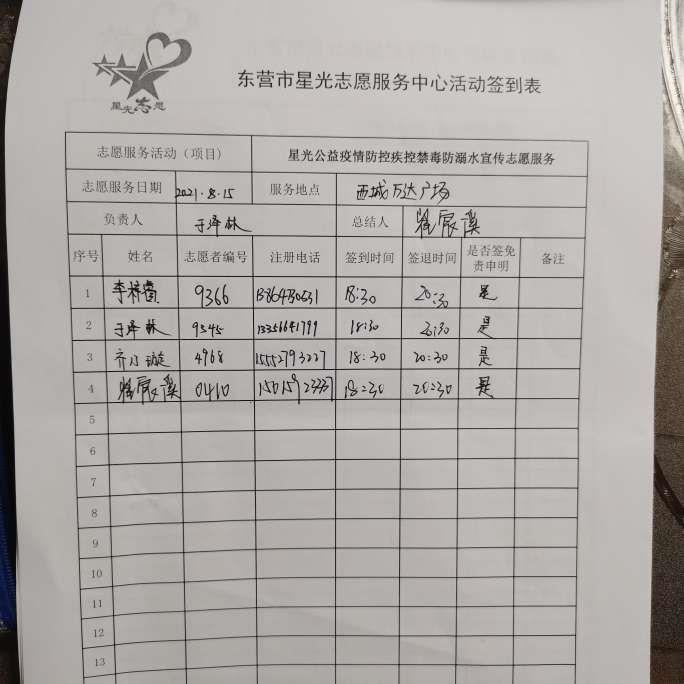 星光志愿
东营市星光志愿服务中心活动签到表
志愿服务活动（项目） 星光公益疫情防控疾控禁毒防溺水宣传志愿服务
志愿服务日期 2021.8.15 服务地点 西城万达广场
负责人 于泽林 总结人
序号 姓名 志愿者编号 注册电话 签到时间 签退时间 是否签免责申明 备注
1 李梓萱 9366 13864730531 18:30 20:30 是
2 于泽林 9545 13356641799 18:30 20:30 是
3 齐 4968 15552793227 18:30 20:30 是
4 0410 18:30 20:30 是
5
6
7
8
9
10
11
12
13